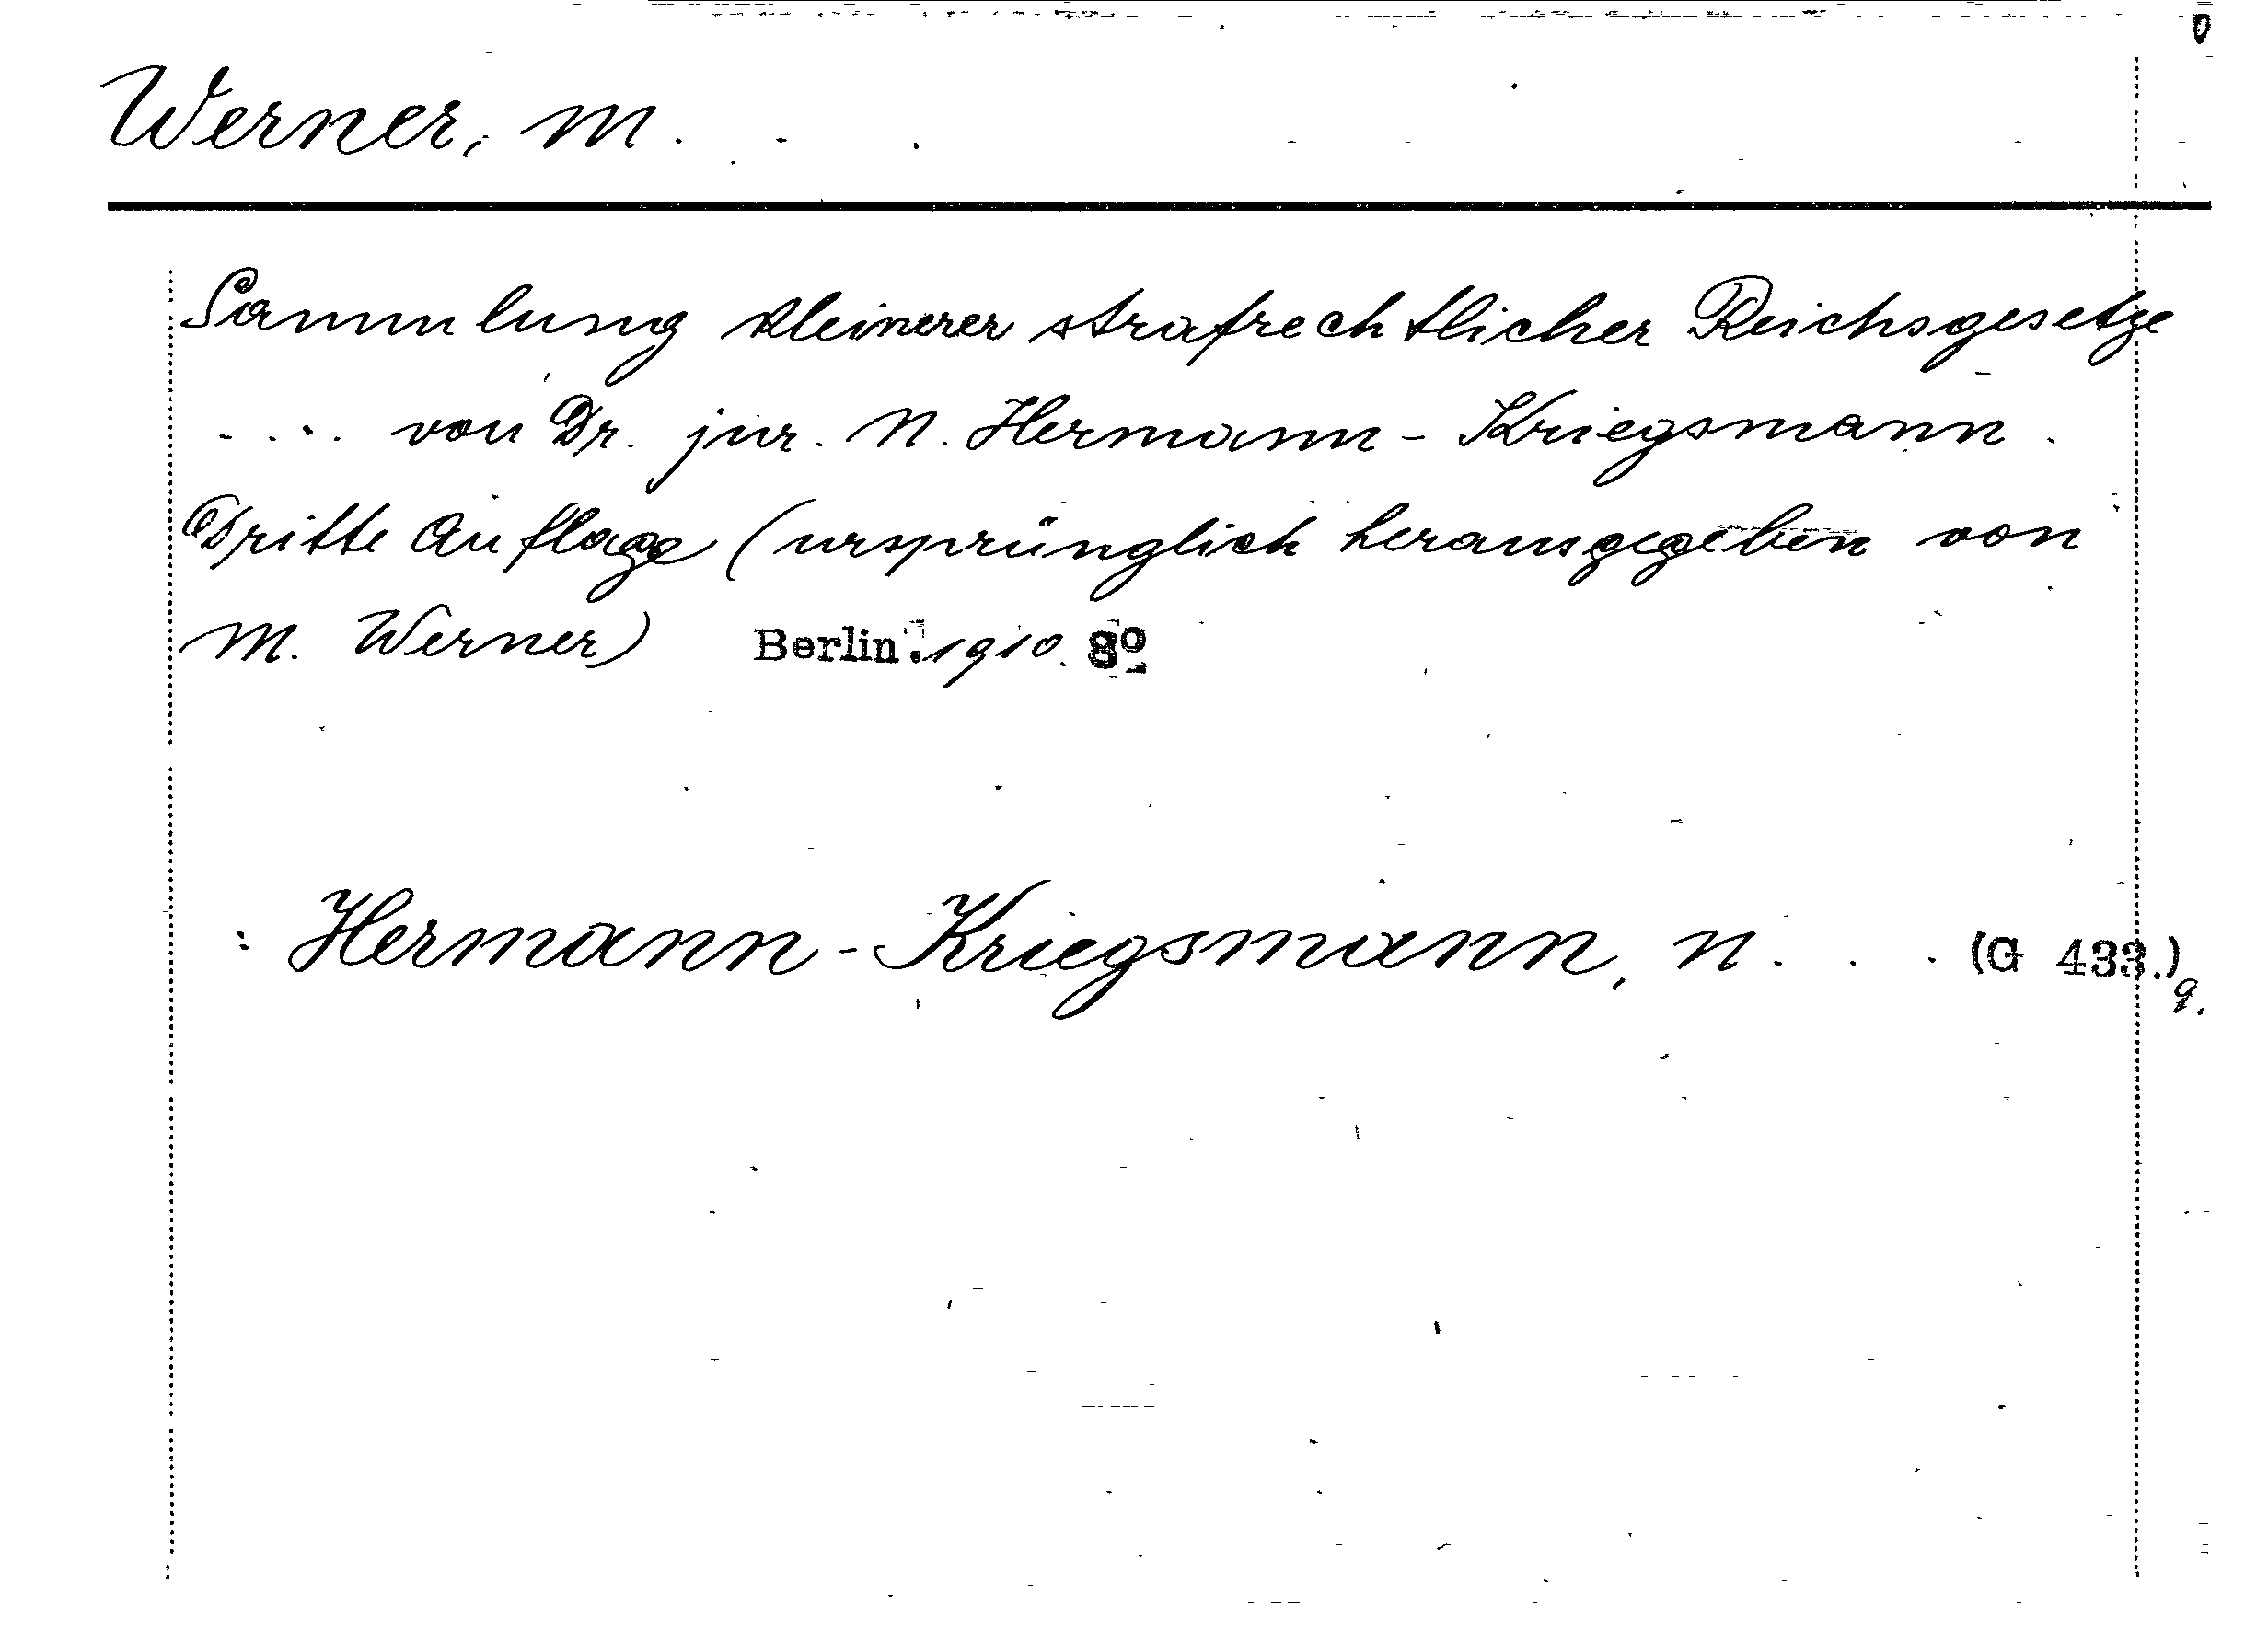 Werner, M.
Sammlung kleinerer strafrechtlicher Reichsgesetze
.... von Dr. jur. N. Hermann-Kriegsmann.
Dritte Auflage (ursprünglich herausgegeben von
M. Werner) Berlin. 1910. 8º
: Hermann-Kriegsmann, N. . . (G 433.)
9.